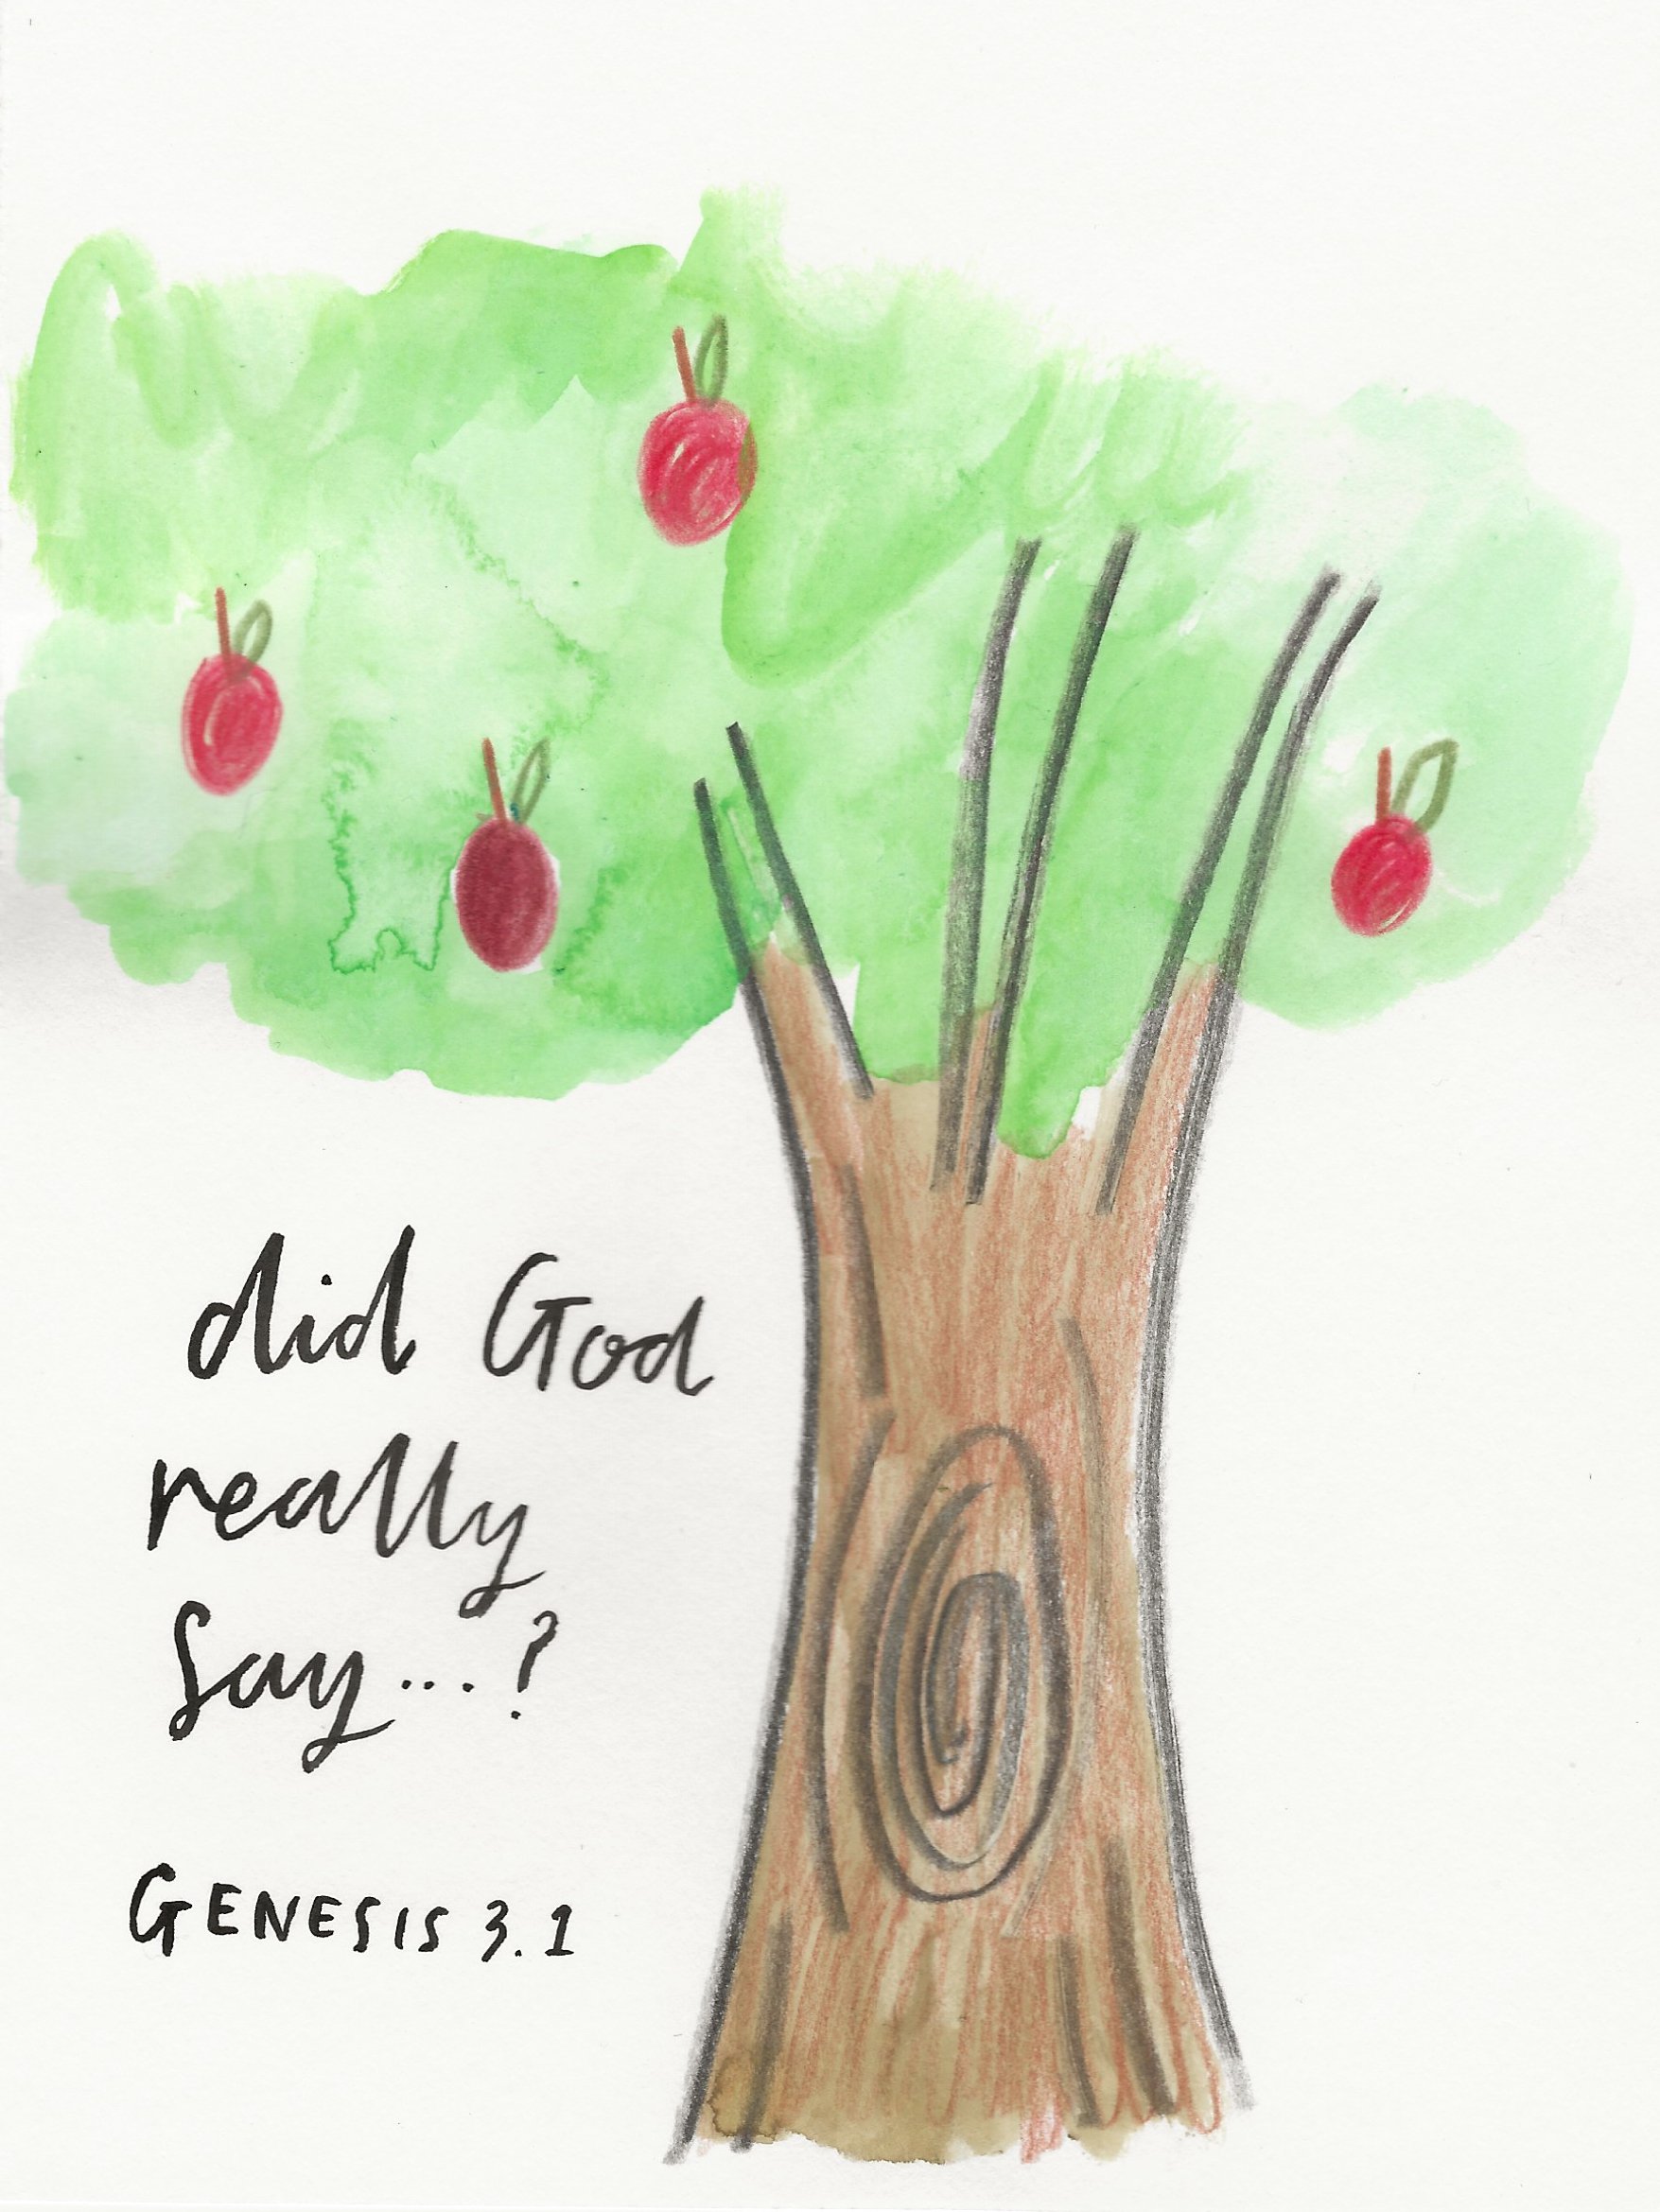 did God
really
say...?
GENESIS 3.1